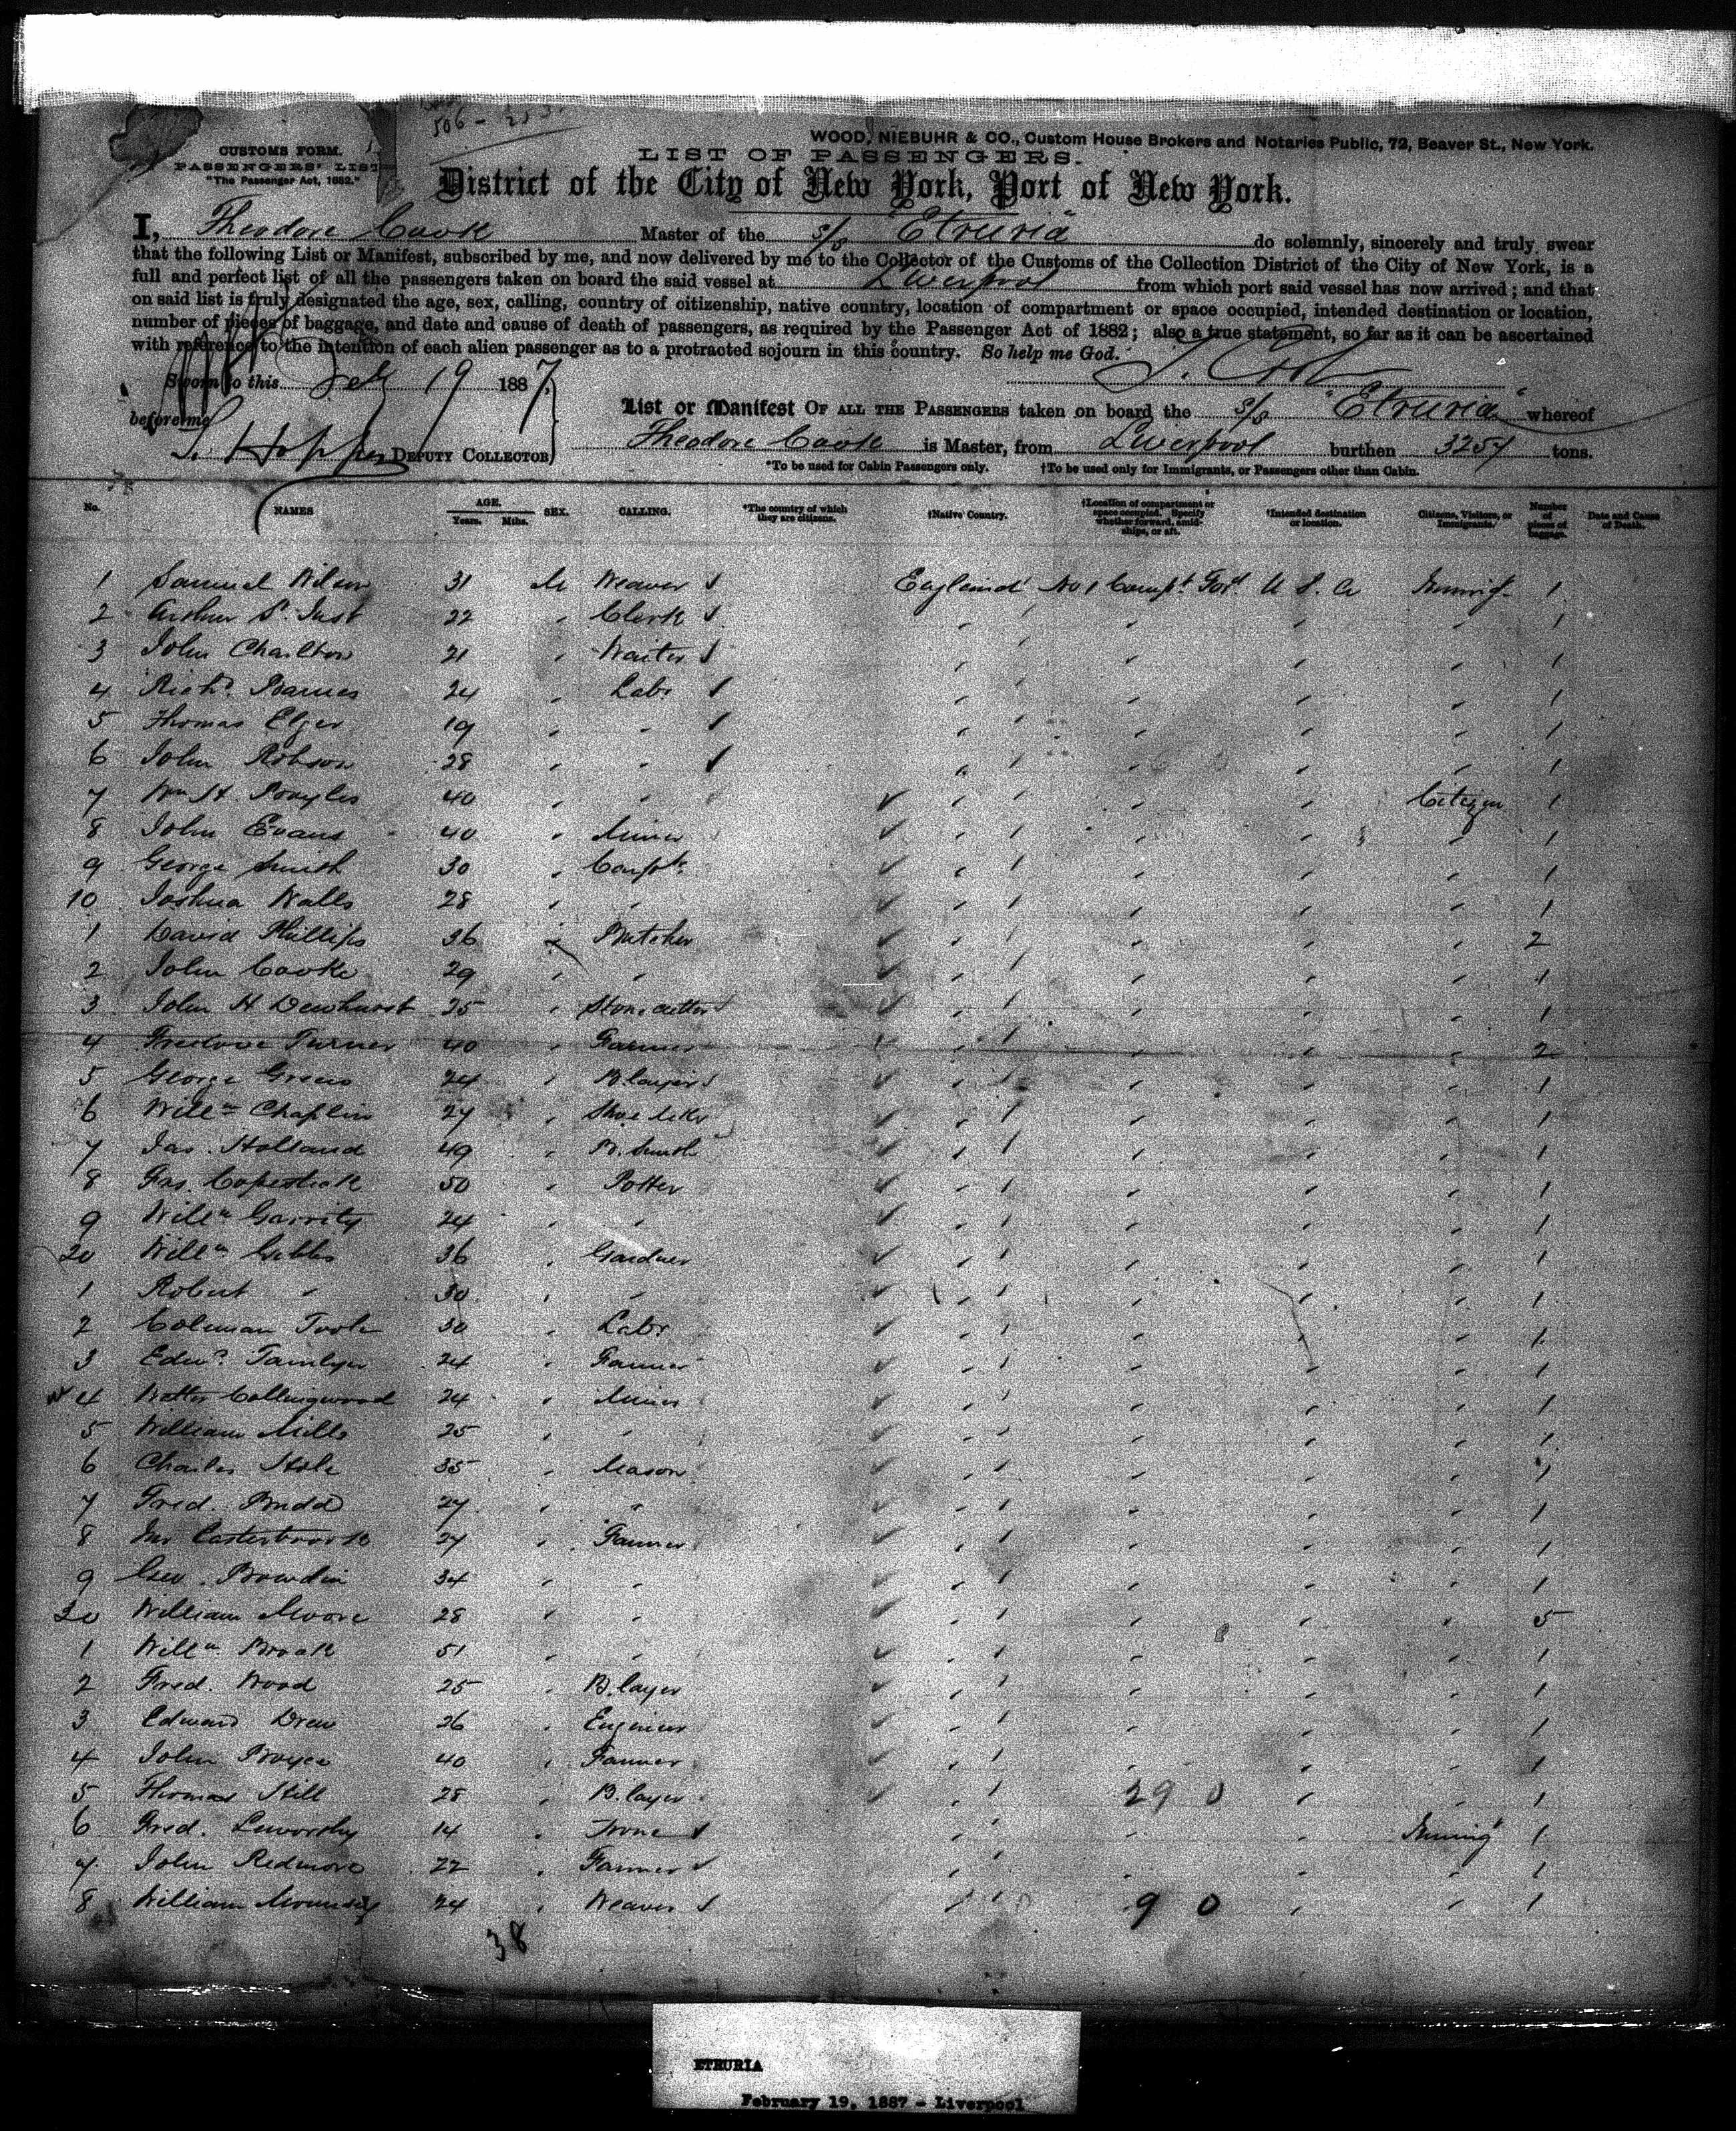 506 - 253.
WOOD, NIEBUHR & CO., Custom House Brokers and Notaries Public, 72, Beaver St., New York.
CUSTOMS FORM.
PASSENGERS' LIST
"The Passenger Act, 1882."
LIST OF PASSENGERS.
District of the City of New York, Port of New York.
I, Theodore Cook Master of the s/s "Etruria" do solemnly, sincerely and truly swear
that the following List or Manifest, subscribed by me, and now delivered by me to the Collector of the Customs of the Collection District of the City of New York, is a
full and perfect list of all the passengers taken on board the said vessel at Liverpool from which port said vessel has now arrived; and that
on said list is truly designated the age, sex, calling, country of citizenship, native country, location of compartment or space occupied, intended destination or location,
number of pieces of baggage, and date and cause of death of passengers, as required by the Passenger Act of 1882; also a true statement, so far as it can be ascertained
with reference to the intention of each alien passenger as to a protracted sojourn in this country. So help me God.
Sworn to this Feb 19 1887, T. Cook
before me
List or Manifest OF ALL THE PASSENGERS taken on board the s/s "Etruria" whereof
DEPUTY COLLECTOR Theodore Cook is Master, from Liverpool burthen 3257 tons.
*To be used for Cabin Passengers only. †To be used only for Immigrants, or Passengers other than Cabin.
No. NAMES AGE. Years. Mths. SEX. CALLING. *The country of which they are citizens. †Native Country. †Location of compartment or space occupied. Specify whether forward, amidships, or aft. †Intended destination or location. Citizens, Visitors, or Immigrants. Number of pieces of baggage. Date and Cause of Death.
1 Samuel Wilson 31 M Weaver England No 1 Compt. Ford. U S. A Immig 1
2 Arthur S. Just 22 " Clerk " " " " " 1
3 John Charlton 21 " Waiter " " " " " 1
4 Richd. Barnes 24 " Labr " " " " " 1
5 Thomas Elger 19 " " " " " " " 1
6 John Robson 28 " " " " " " " 1
7 Wm H. 40 " " " " " " Citizen 1
8 John Evans 40 " Miner " " " " " 1
9 George Smith 30 " Carptr " " " " " 1
10 Joshua Walls 28 " " " " " " " 1
1 David Phillips 36 " Butcher " " " " " 2
2 John Cooke 29 " " " " " " " 1
3 John H Dewhurst 25 " Stone cutter " " " " " 1
4 Freelove Turner 40 " Farmer " " " " " 2
5 George Green 24 " B. layer " " " " " 1
6 Willm Chaplin 27 " Shoe Mkr " " " " " 1
7 Jas. Holland 49 " B. Smith " " " " " 1
8 Jas. Copestick 50 " Potter " " " " " 1
9 Willm Garrity 24 " " " " " " " 1
20 Willm Gibbs 36 " Gardner " " " " " 1
1 Robert " 30 " " " " " " " 1
2 Coleman Toole 30 " Labr " " " " " 1
3 Edwd. Tamlyn 24 " Farmer " " " " " 1
4 Walter Collingwood 24 " Miner " " " " " 1
5 William Mills 25 " " " " " " " 1
6 Charles Hole 35 " Mason " " " " " 1
7 Fred. Budd 27 " " " " " " " 1
8 Jno Easterbrook 27 " Farmer " " " " " 1
9 Geo. Bowdin 34 " " " " " " " 1
30 William Moore 28 " " " " " " " 5
1 Willm Brook 51 " " " " " " " 1
2 Fred. Wood 25 " B. layer " " " " " 1
3 Edward Drew 26 " Engineer " " " " " 1
4 John Boyce 40 " Farmer " " " " " 1
5 Thomas Hill 28 " B. layer " " 29 0 " " 1
6 Fred. Leworthy 14 " None " " " " Immig 1
7 John Redmore 22 " Farmer " " " " " 1
8 William Mounsey 24 " Weaver " " 9 0 " " 1
38
ETRURIA
February 19, 1887 - Liverpool